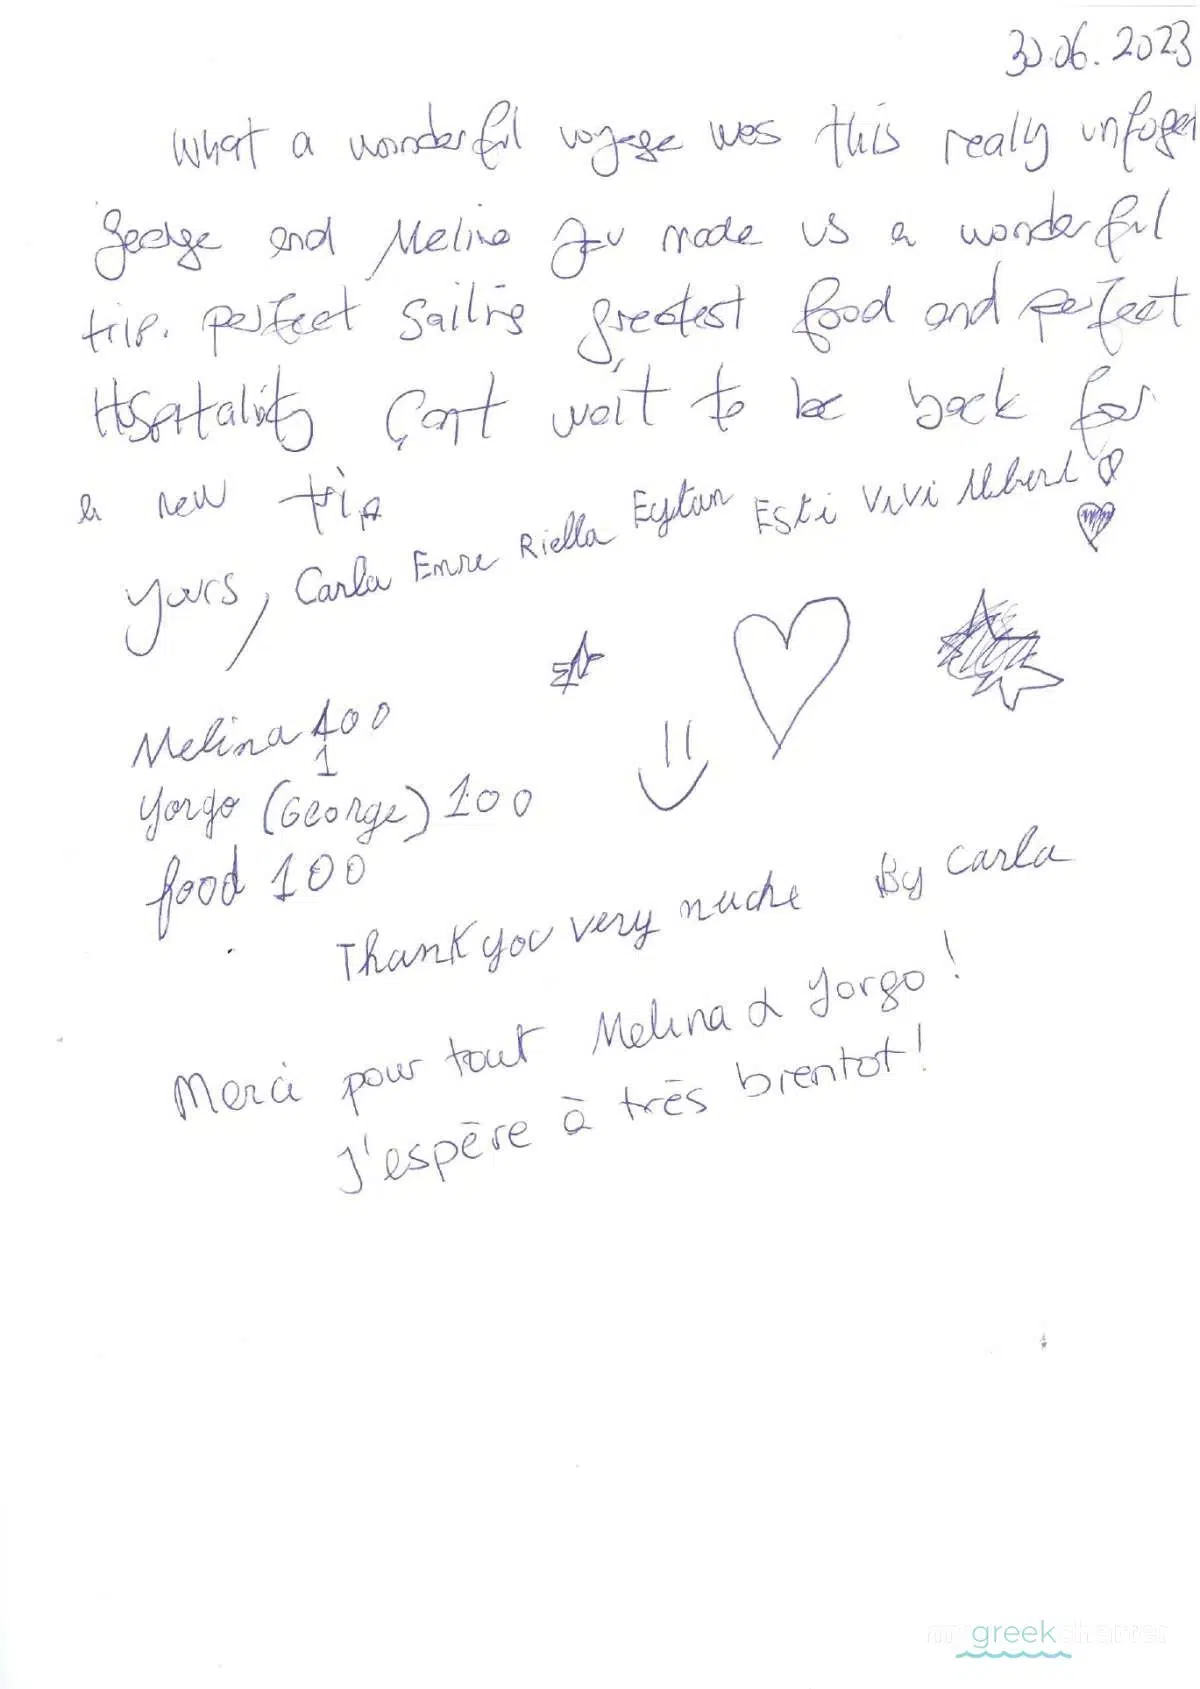 30.06.2023
What a wonderful voyage was this really unfoge
George and Melina you made us a wonderful
trip. perfect sailing greatest food and perfect
Hospitality Can't wait to be back for
a new trip
Yours, Carla Emre Riella Eytan Esti ViVi Albert
Melina 100
1
Yorgo (George) 100
food 100
Thank you very muche By Carla
Merci pour tout Melina & Yorgo!
J'espère à très bientot!
my greek charter